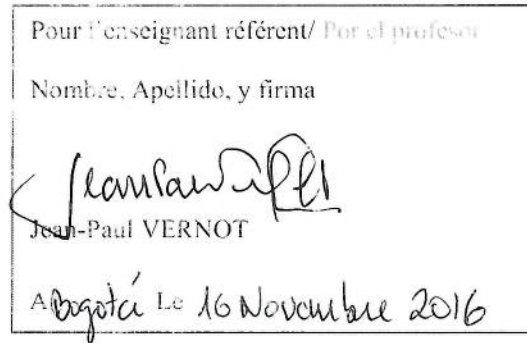 Pour l'enseignant référent/ Por el profesor
Nombre, Apellido, y firma
Jean-Paul VERNOT
A Bogotá Le 16 Novembre 2016